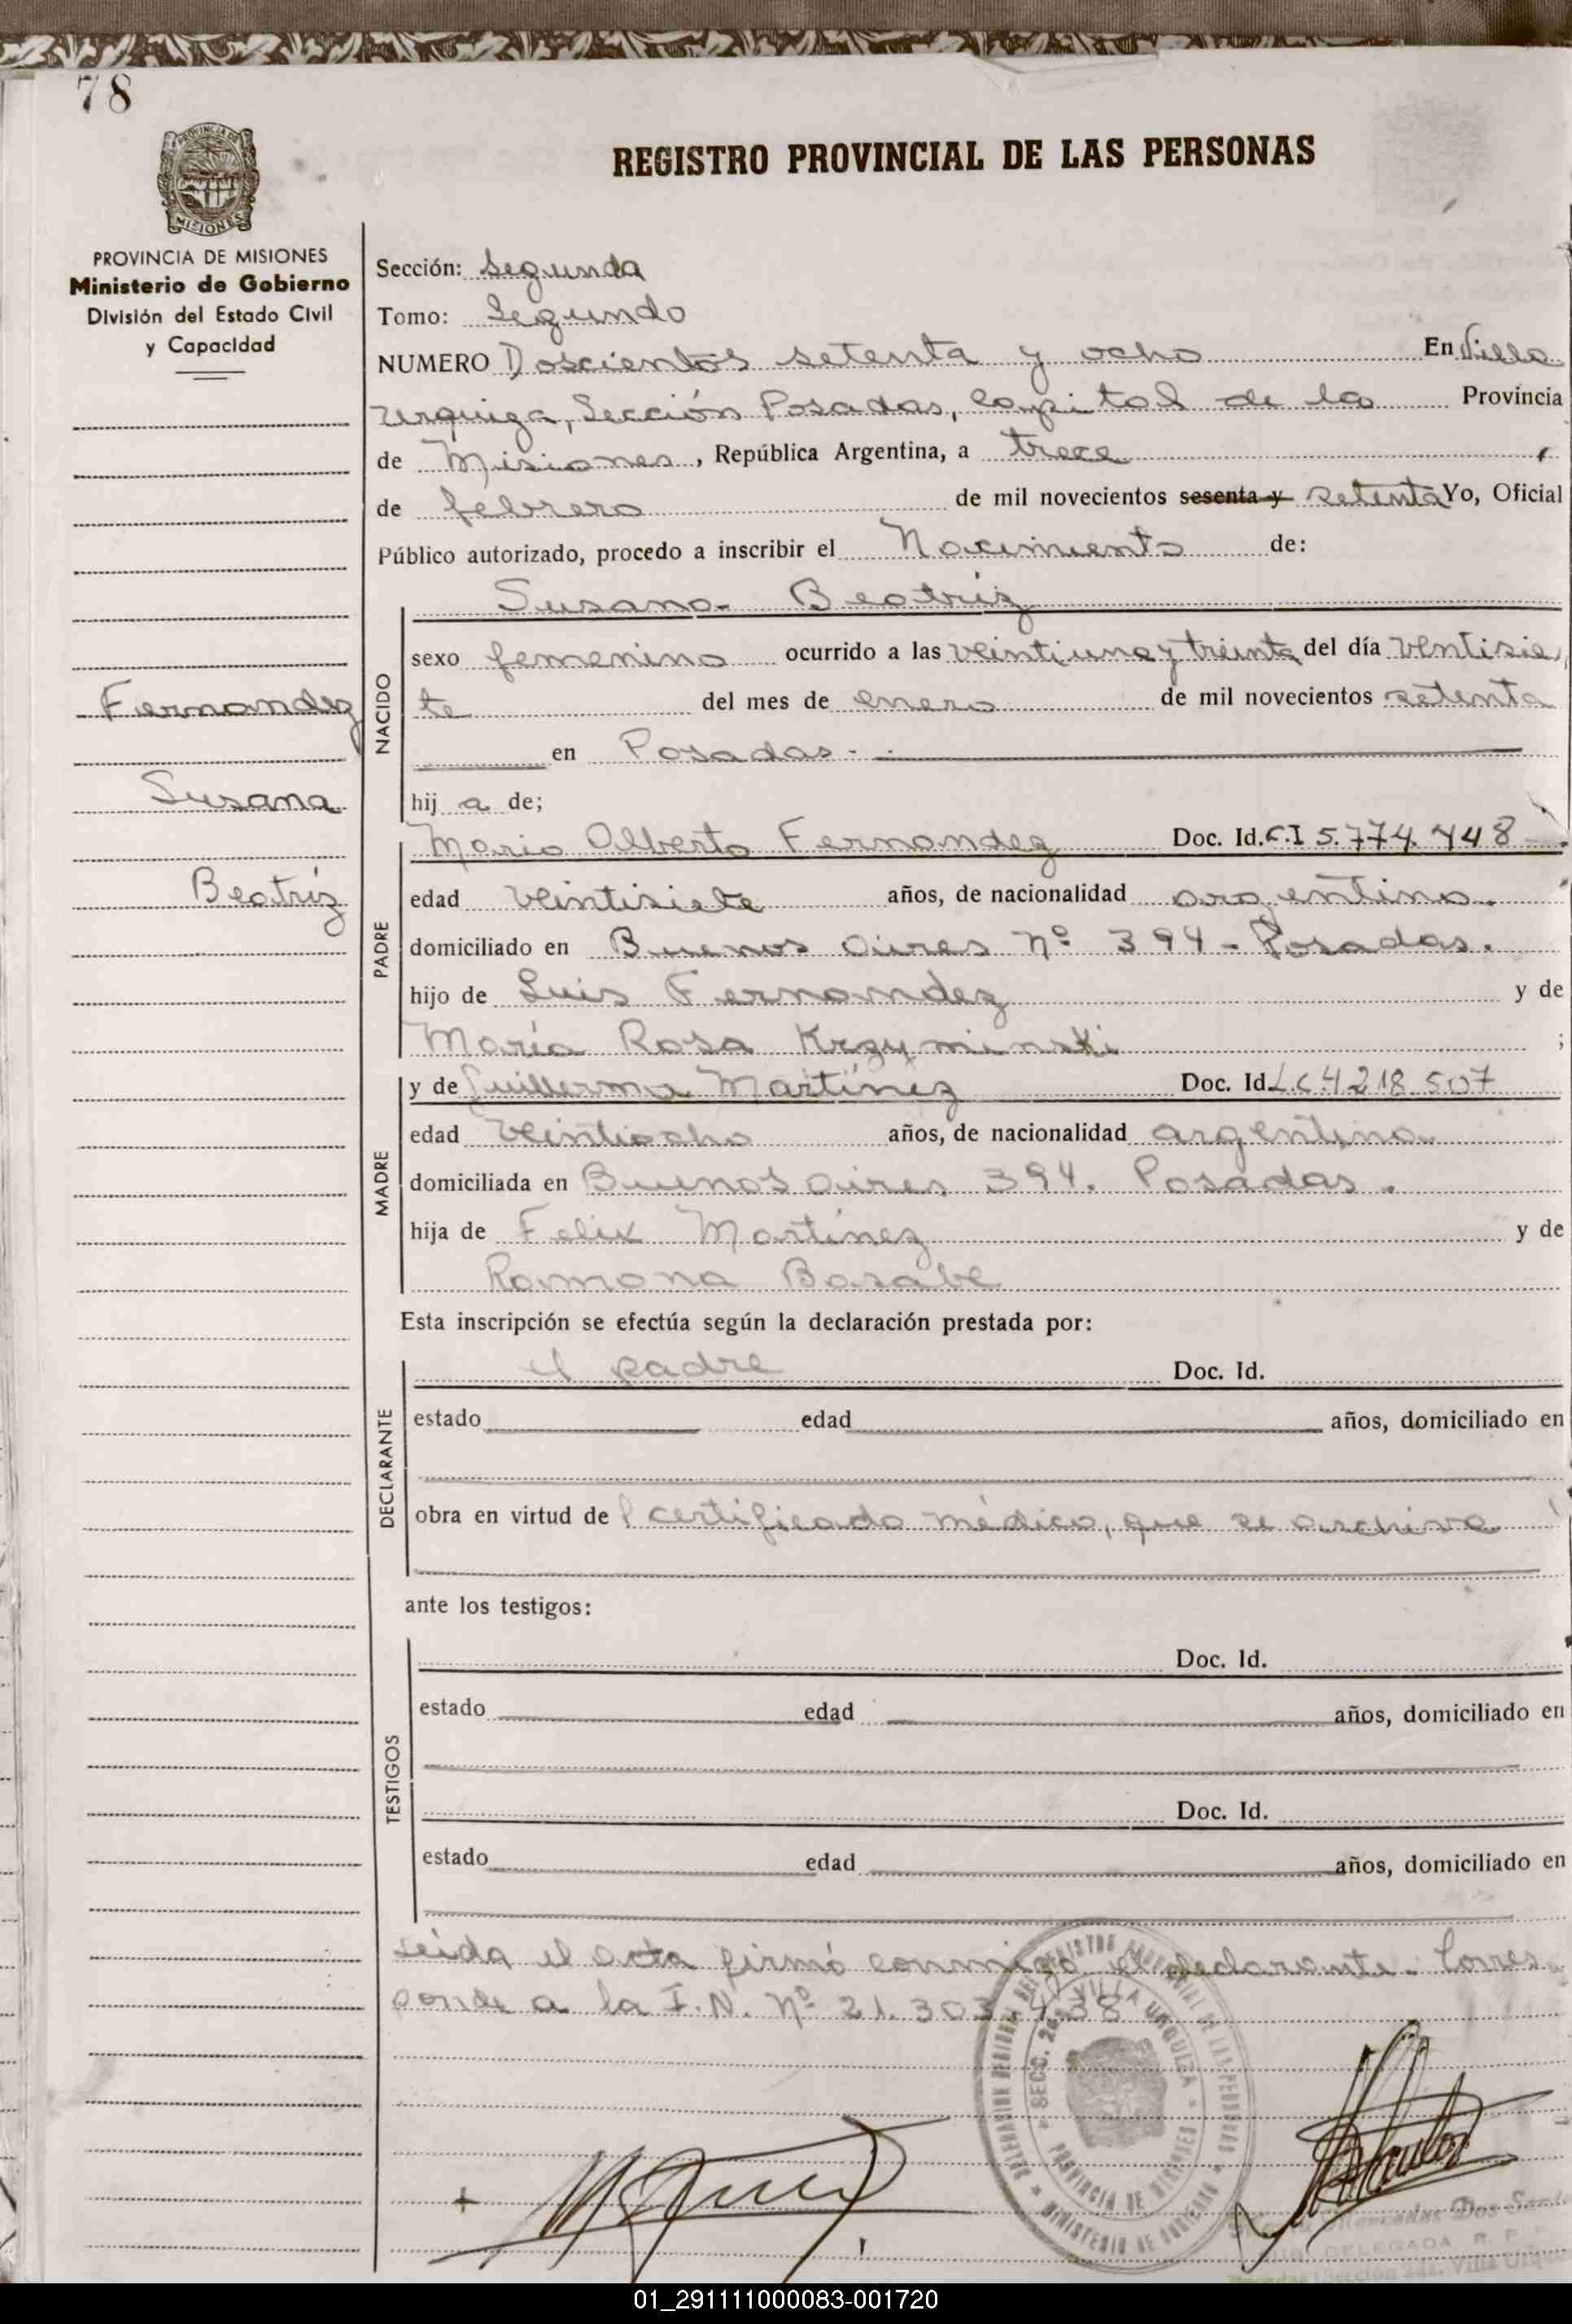 78
REGISTRO PROVINCIAL DE LAS PERSONAS
PROVINCIA DE
MISIONES
PROVINCIA DE MISIONES
Ministerio de Gobierno
División del Estado Civil
y Capacidad
Fernandez
Susana
Beatríz
Sección: Segunda
Tomo: Segundo
NUMERO Doscientos setenta y ocho En Villa
Urquiza, Sección Posadas, Capital de la Provincia
de Misiones, República Argentina, a trece
de febrero de mil novecientos sesenta y setenta Yo, Oficial
Público autorizado, procedo a inscribir el Nacimiento de:
NACIDO
Susana Beatríz
sexo femenino ocurrido a las veintiuna y treinta del día ventisie
te del mes de enero de mil novecientos setenta
en Posadas.-
hij a de;
PADRE
Mario Alberto Fernandez Doc. Id. C.I 5.774.448
edad veintisiete años, de nacionalidad argentina.
domiciliado en Buenos Aires Nº 394 - Posadas.
hijo de Luis Fernandez y de
María Rosa Krzyminski ;
MADRE
y de Guillerma Martínez Doc. Id. L.C. 4.218.507
edad veintiocho años, de nacionalidad argentina.
domiciliada en Buenos Aires 394. Posadas.
hija de Felix Martínez y de
Ramona Basabe
Esta inscripción se efectúa según la declaración prestada por:
DECLARANTE
el padre Doc. Id.
estado edad años, domiciliado en
obra en virtud de l certificado médico, que se archiva
ante los testigos:
TESTIGOS
Doc. Id.
estado edad años, domiciliado en
Doc. Id.
estado edad años, domiciliado en
Leída el acta firmó conmigo el declarante. Corres
ponde a la I.N. Nº 21.303.438
REGISTRO PROVINCIAL DE LAS PERSONAS
SECC. 2da. VILLA URQUIZA
PROVINCIA DE MISIONES
MINISTERIO DE GOBIERNO
Mercedes Dos Santos
DELEGADA R. P. P.
Sección 2da. Villa Urquiza
01_291111000083-001720